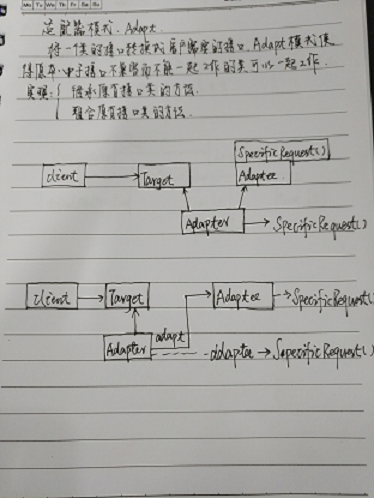 适配器模式. Adapt
将一个类的接口转换成客户端要的接口. Adapt模式使
得原本由于接口不兼容而不能一起工作的类可以一起工作.
实现: { 继承原有接口类的方式.
组合原有接口类的方式.
SpecificRequest()
client
Target
Adaptee
Adapter
SpecificRequest()
client
Target
Adaptee
SpecificRequest()
adapt
Adapter
adaptee
SopecificRequest()